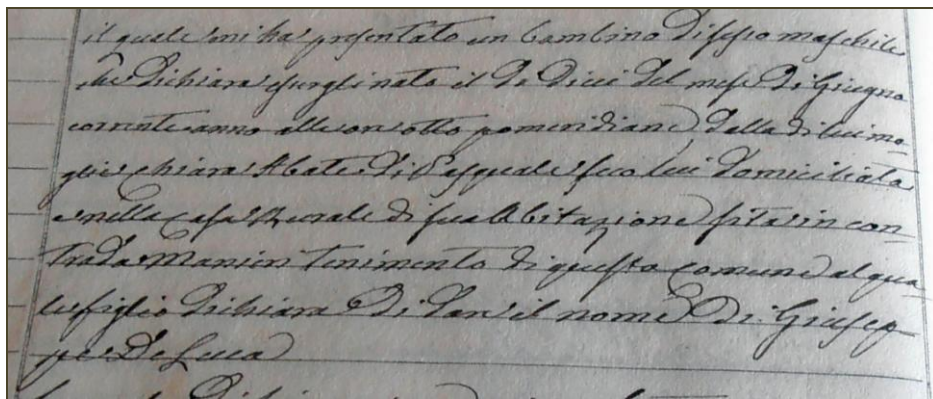 il quale mi ha presentato un bambino di sesso maschile
che dichiara esserglinato il dì Dieci del mese di Giugno
corrente anno alle ore otto pomeridiane dalla di lui mo-
glie Chiara Abate di Pasquale seco lui domiciliata
e nella casa Rurale di sua Abitazione sita in con-
trada in tenimento di questo comune al qua
le figlio dichiara di dare il nome di Giusep-
pe De Luca